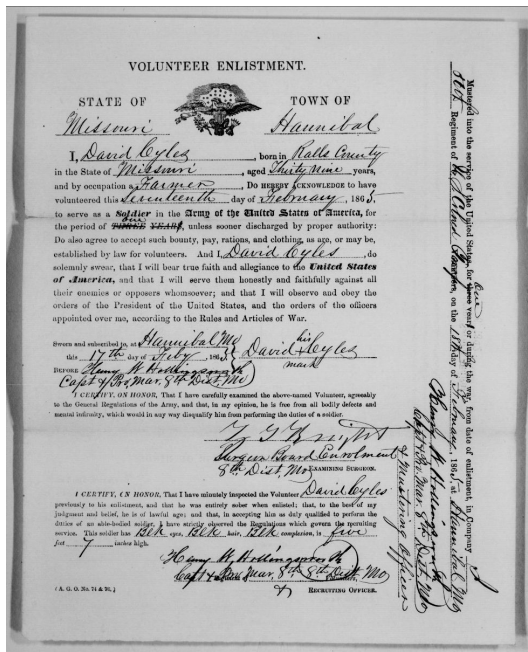 VOLUNTEER ENLISTMENT.
STATE OF TOWN OF
Missouri Hannibal
I, David Cyles, born in Ralls County
in the State of Missouri, aged Thirty Nine years,
and by occupation a Farmer Do HEREBY ACKNOWLEDGE to have
volunteered this Seventeenth day of February, 1865,
to serve as a Soldier in the Army of the United States of America, for
the period of THREE one YEARS, unless sooner discharged by proper authority:
Do also agree to accept such bounty, pay, rations, and clothing, as are, or may be,
established by law for volunteers. And I, David Cyles, do
solemnly swear, that I will bear true faith and allegiance to the United States
of America, and that I will serve them honestly and faithfully against all
their enemies or opposers whomsoever; and that I will observe and obey the
orders of the President of the United States, and the orders of the officers
appointed over me, according to the Rules and Articles of War.
Sworn and subscribed to, at Hannibal Mo
this 17th day of Feby, 1865. David his x mark Cyles
BEFORE Henry W Hollingsworth
Capt & Pro Mar, 8th Dist, Mo
I CERTIFY, ON HONOR, That I have carefully examined the above-named Volunteer, agreeably
to the General Regulations of the Army, and that, in my opinion, he is free from all bodily defects and
mental infirmity, which would in any way disqualify him from performing the duties of a soldier.
Surgeon Board Enrolment
8th Dist, Mo EXAMINING SURGEON.
I CERTIFY, ON HONOR, That I have minutely inspected the Volunteer David Cyles
previously to his enlistment, and that he was entirely sober when enlisted; that, to the best of my
judgment and belief, he is of lawful age; and that, in accepting him as duly qualified to perform the
duties of an able-bodied soldier, I have strictly observed the Regulations which govern the recruiting
service. This soldier has Blk eyes, Blk hair, Blk complexion, is five
feet 7 inches high.
Henry W. Hollingsworth
Capt & Pro Mar, 8th Dist, Mo
RECRUITING OFFICER.
(A. G. O. No. 74 & 76.)
Mustered into the service of the United States, for three one years or during the war, from date of enlistment, in Company
Regiment of U S Colored on the 18th day of February, 1865, at Hannibal Mo
Henry W Hollingsworth
Capt & Pro Mar, 8th Dist Mo
& Mustering Officer